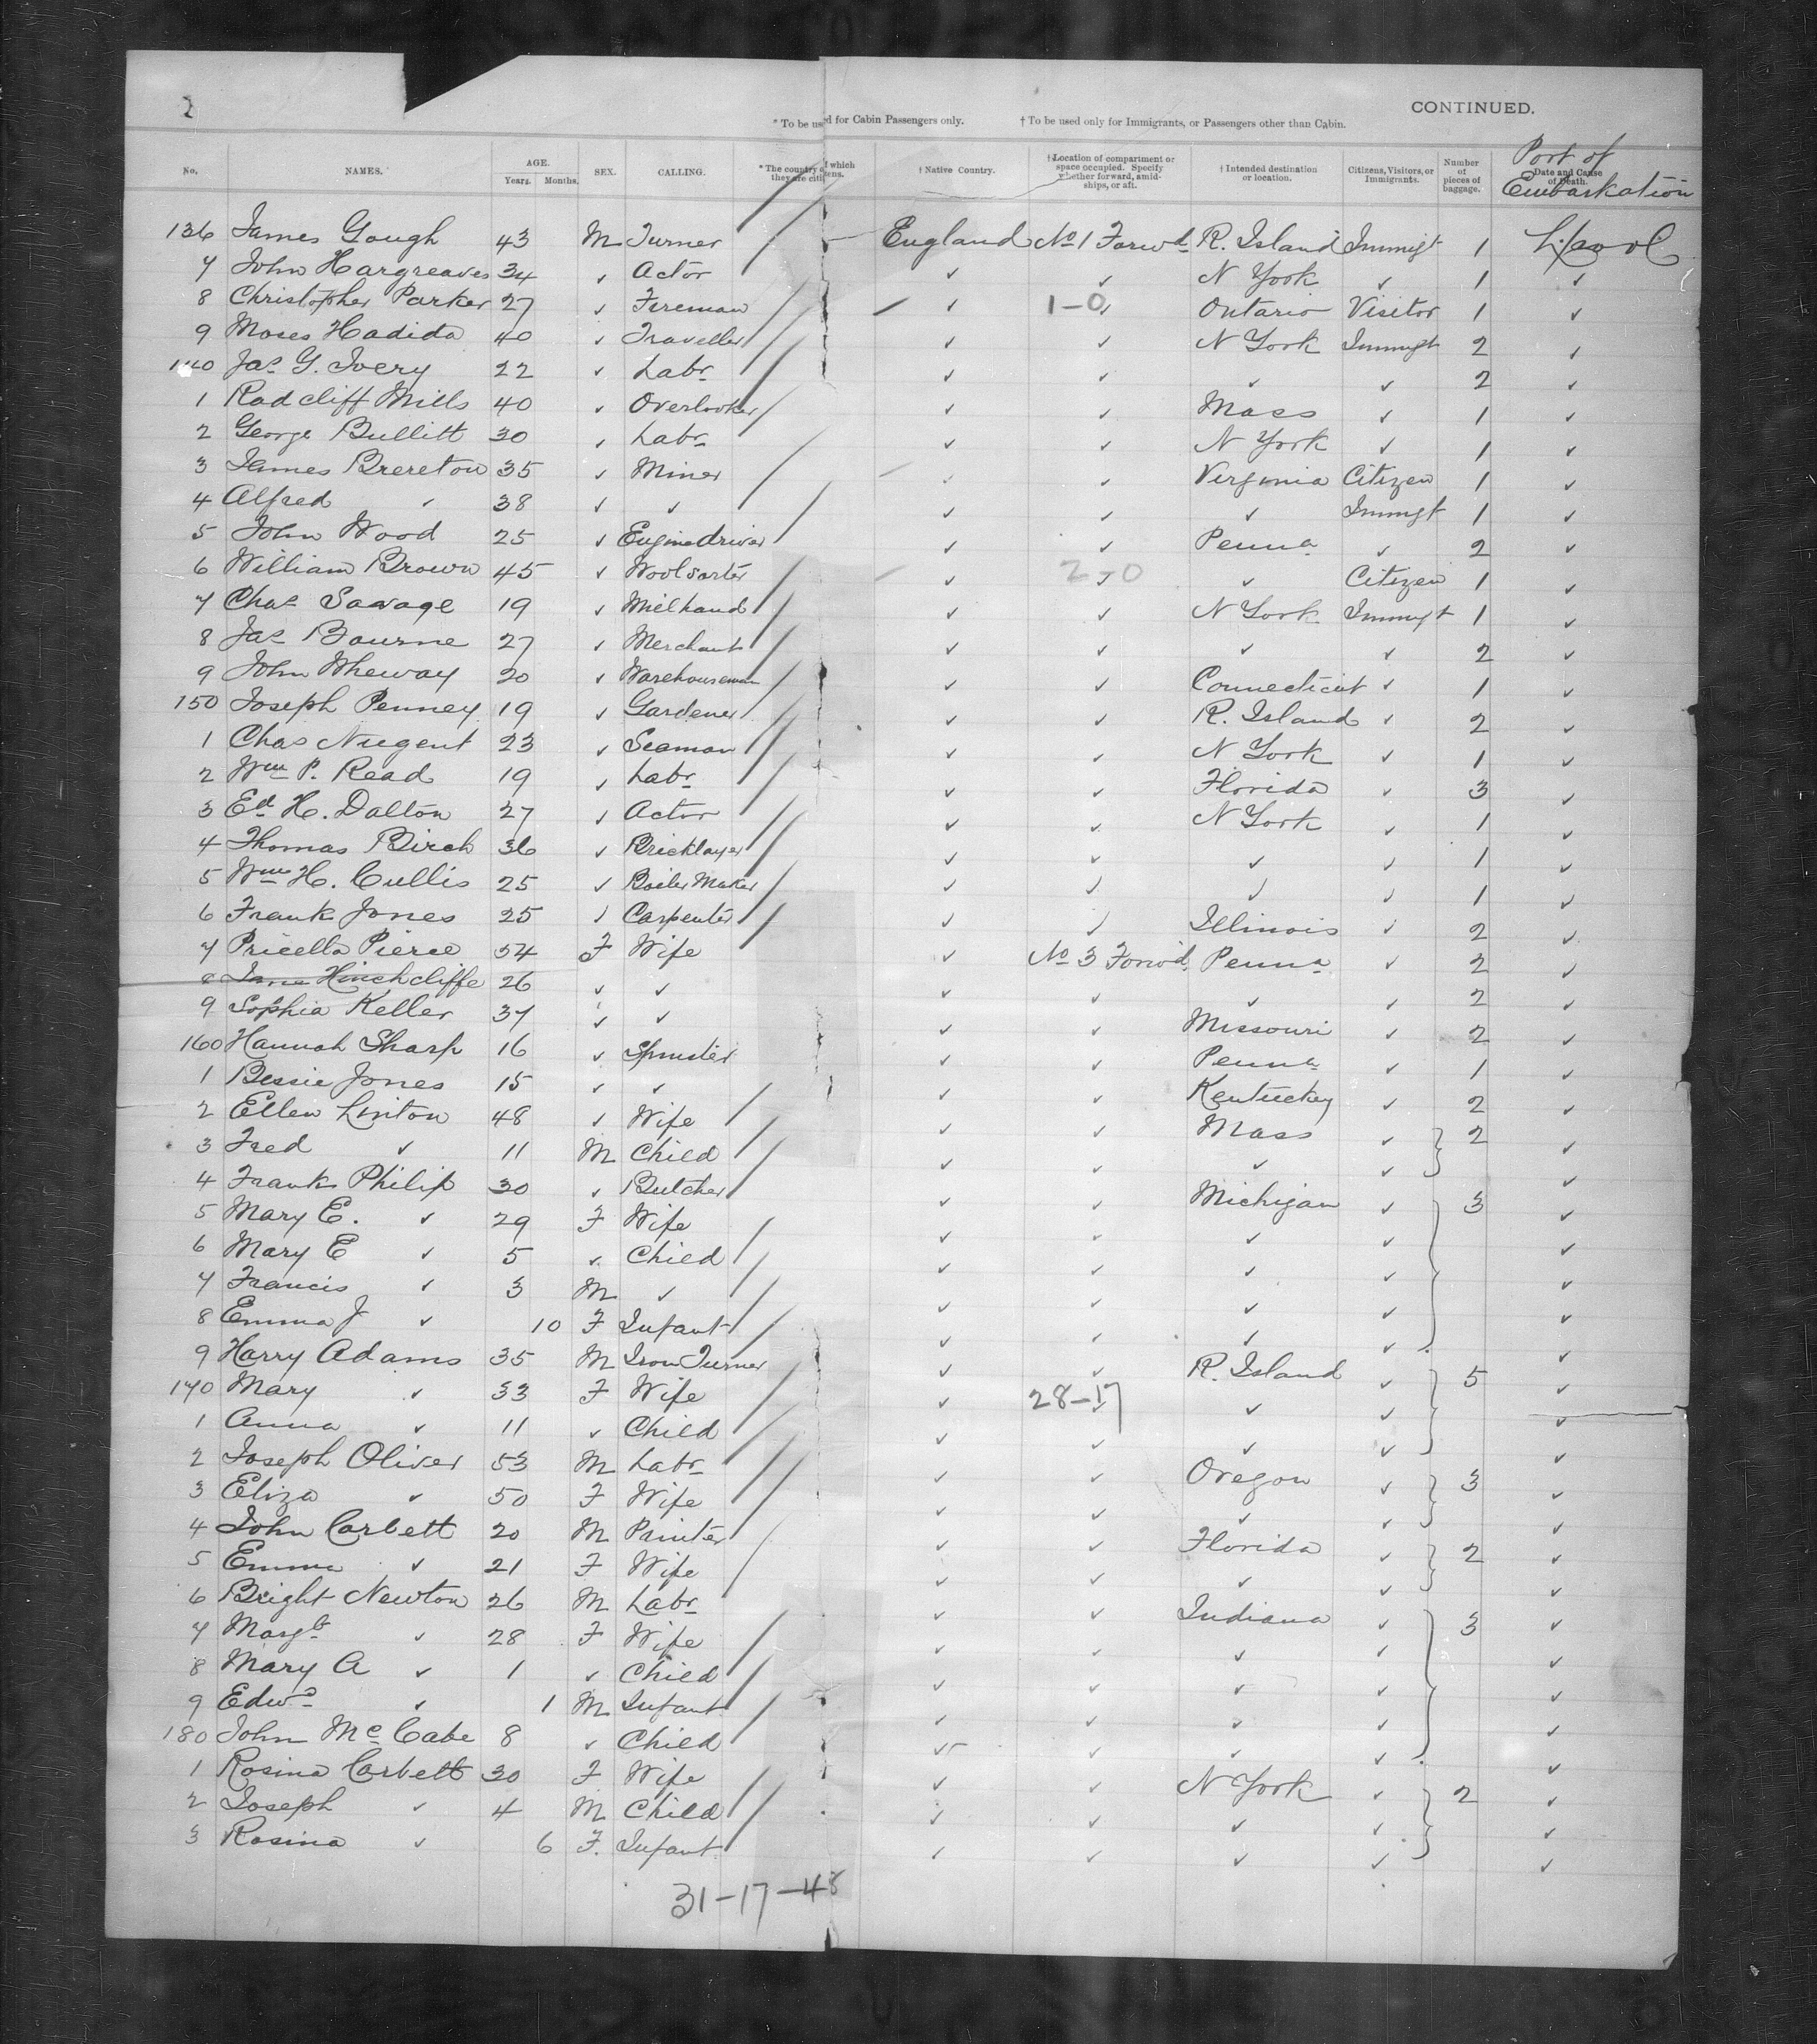 2
CONTINUED.
* To be used for Cabin Passengers only. † To be used only for Immigrants, or Passengers other than Cabin.
No. NAMES. AGE. Years. Months. SEX. CALLING. * The country of which they are citizens. † Native Country. † Location of compartment or space occupied. Specify whether forward, amidships, or aft. † Intended destination or location. Citizens, Visitors, or Immigrants. Number of pieces of baggage. Date and Cause of Death. Port of Embarkation
136 James Gough 43 M Turner England No 1 Forwd R. Island Immigt 1 L/pool
7 John Hargreaves 34 ✓ Actor ✓ ✓ N York ✓ 1 ✓
8 Christopher Parker 27 ✓ Fireman ✓ 1-0 ✓ Ontario Visitor 1 ✓
9 Moses Hadida 40 ✓ Traveller ✓ ✓ N York Immigt 2 ✓
140 Jas G. Ivery 22 ✓ Labr ✓ ✓ ✓ ✓ 2 ✓
1 Radcliff Mills 40 ✓ Overlooker ✓ ✓ Mass ✓ 1 ✓
2 George Bullitt 30 ✓ Labr ✓ ✓ N York ✓ 1 ✓
3 James Brereton 35 ✓ Miner ✓ ✓ Virginia Citizen 1 ✓
4 Alfred ✓ 38 ✓ ✓ ✓ ✓ ✓ Immigt 1 ✓
5 John Wood 25 ✓ Enginedriver ✓ ✓ Penna ✓ 2 ✓
6 William Brown 45 ✓ Woolsorter ✓ 2-0 ✓ ✓ Citizen 1 ✓
7 Chas Savage 19 ✓ Millhand ✓ ✓ N York Immigt 1 ✓
8 Jas Bourne 27 ✓ Merchant ✓ ✓ ✓ ✓ 2 ✓
9 John Wheway 20 ✓ Warehouseman ✓ ✓ Connecticut ✓ 1 ✓
150 Joseph Penney 19 ✓ Gardener ✓ ✓ R. Island ✓ 2 ✓
1 Chas Nugent 23 ✓ Seaman ✓ ✓ N York ✓ 1 ✓
2 Wm P. Read 19 ✓ Labr ✓ ✓ Florida ✓ 3 ✓
3 Ed H. Dalton 27 ✓ Actor ✓ ✓ N York ✓ 1 ✓
4 Thomas Birch 36 ✓ Bricklayer ✓ ✓ ✓ ✓ 1 ✓
5 Wm H. Cullis 25 ✓ Boiler Maker ✓ ✓ ✓ ✓ 1 ✓
6 Frank Jones 25 ✓ Carpenter ✓ ✓ Illinois ✓ 2 ✓
7 Pricella Pierce 54 F Wife ✓ No 3 Forwd. Penna ✓ 2 ✓
8 Jane Hinchcliffe 26 ✓ ✓ ✓ ✓ ✓ ✓ 2 ✓
9 Sophia Keller 37 ✓ ✓ ✓ ✓ Missouri ✓ 2 ✓
160 Hannah Sharp 16 ✓ Spinster ✓ ✓ Penna ✓ 1 ✓
1 Bessie Jones 15 ✓ ✓ ✓ ✓ Kentucky ✓ 2 ✓
2 Ellen Linton 48 ✓ Wife ✓ ✓ Mass ✓ 2 ✓
3 Fred ✓ 11 M Child ✓ ✓ ✓ ✓ ✓
4 Frank Philip 30 ✓ Butcher ✓ ✓ Michigan ✓ 3 ✓
5 Mary E. ✓ 29 F Wife ✓ ✓ ✓ ✓ ✓
6 Mary E ✓ 5 ✓ Child ✓ ✓ ✓ ✓ ✓
7 Francis ✓ 3 M ✓ ✓ ✓ ✓ ✓ ✓
8 Emma J ✓ 10 F Infant ✓ ✓ ✓ ✓ ✓
9 Harry Adams 35 M Iron Turner ✓ ✓ R. Island ✓ 5 ✓
170 Mary ✓ 33 F Wife ✓ 28-17 ✓ ✓ ✓ ✓
1 Anna ✓ 11 ✓ Child ✓ ✓ ✓ ✓ ✓
2 Joseph Oliver 53 M Labr ✓ ✓ Oregon ✓ 3 ✓
3 Eliza ✓ 50 F Wife ✓ ✓ ✓ ✓ ✓
4 John Corbett 20 M Painter ✓ ✓ Florida ✓ 2 ✓
5 Emma ✓ 21 F Wife ✓ ✓ ✓ ✓ ✓
6 Bright Newton 26 M Labr ✓ ✓ Indiana ✓ 3 ✓
7 Margt ✓ 28 F Wife ✓ ✓ ✓ ✓ ✓
8 Mary A ✓ 1 ✓ Child ✓ ✓ ✓ ✓ ✓
9 Edwd ✓ 1 M Infant ✓ ✓ ✓ ✓ ✓
180 John McCabe 8 ✓ Child ✓ ✓ ✓ ✓ ✓
1 Rosina Corbett 30 F Wife ✓ ✓ N York ✓ 2 ✓
2 Joseph ✓ 4 M Child ✓ ✓ ✓ ✓ ✓
3 Rosina ✓ 6 F. Infant ✓ ✓ ✓ ✓ ✓
31-17-48